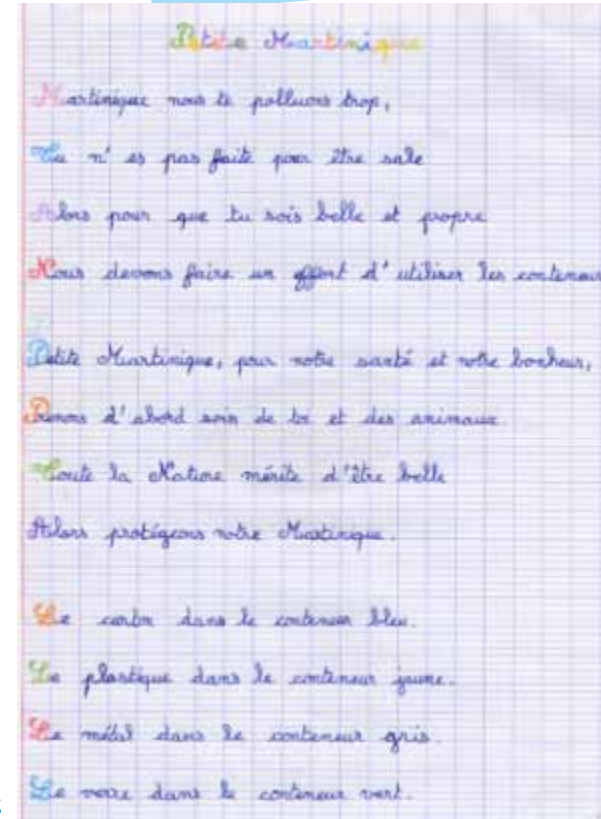 Petite Martinique
Martinique nous te polluons trop,
Tu n'es pas faite pour être sale
Alors pour que tu sois belle et propre
Nous devons faire un effort d'utiliser les conteneur
Petite Martinique, pour notre santé et notre bonheur,
Prenons d'abord soin de toi et des animaux.
Toute la Nature mérite d'être belle
Alors protégeons notre Martinique.
Le carton dans le conteneur bleu.
Le plastique dans le conteneur jaune.
Le métal dans le conteneur gris.
Le verre dans le conteneur vert.